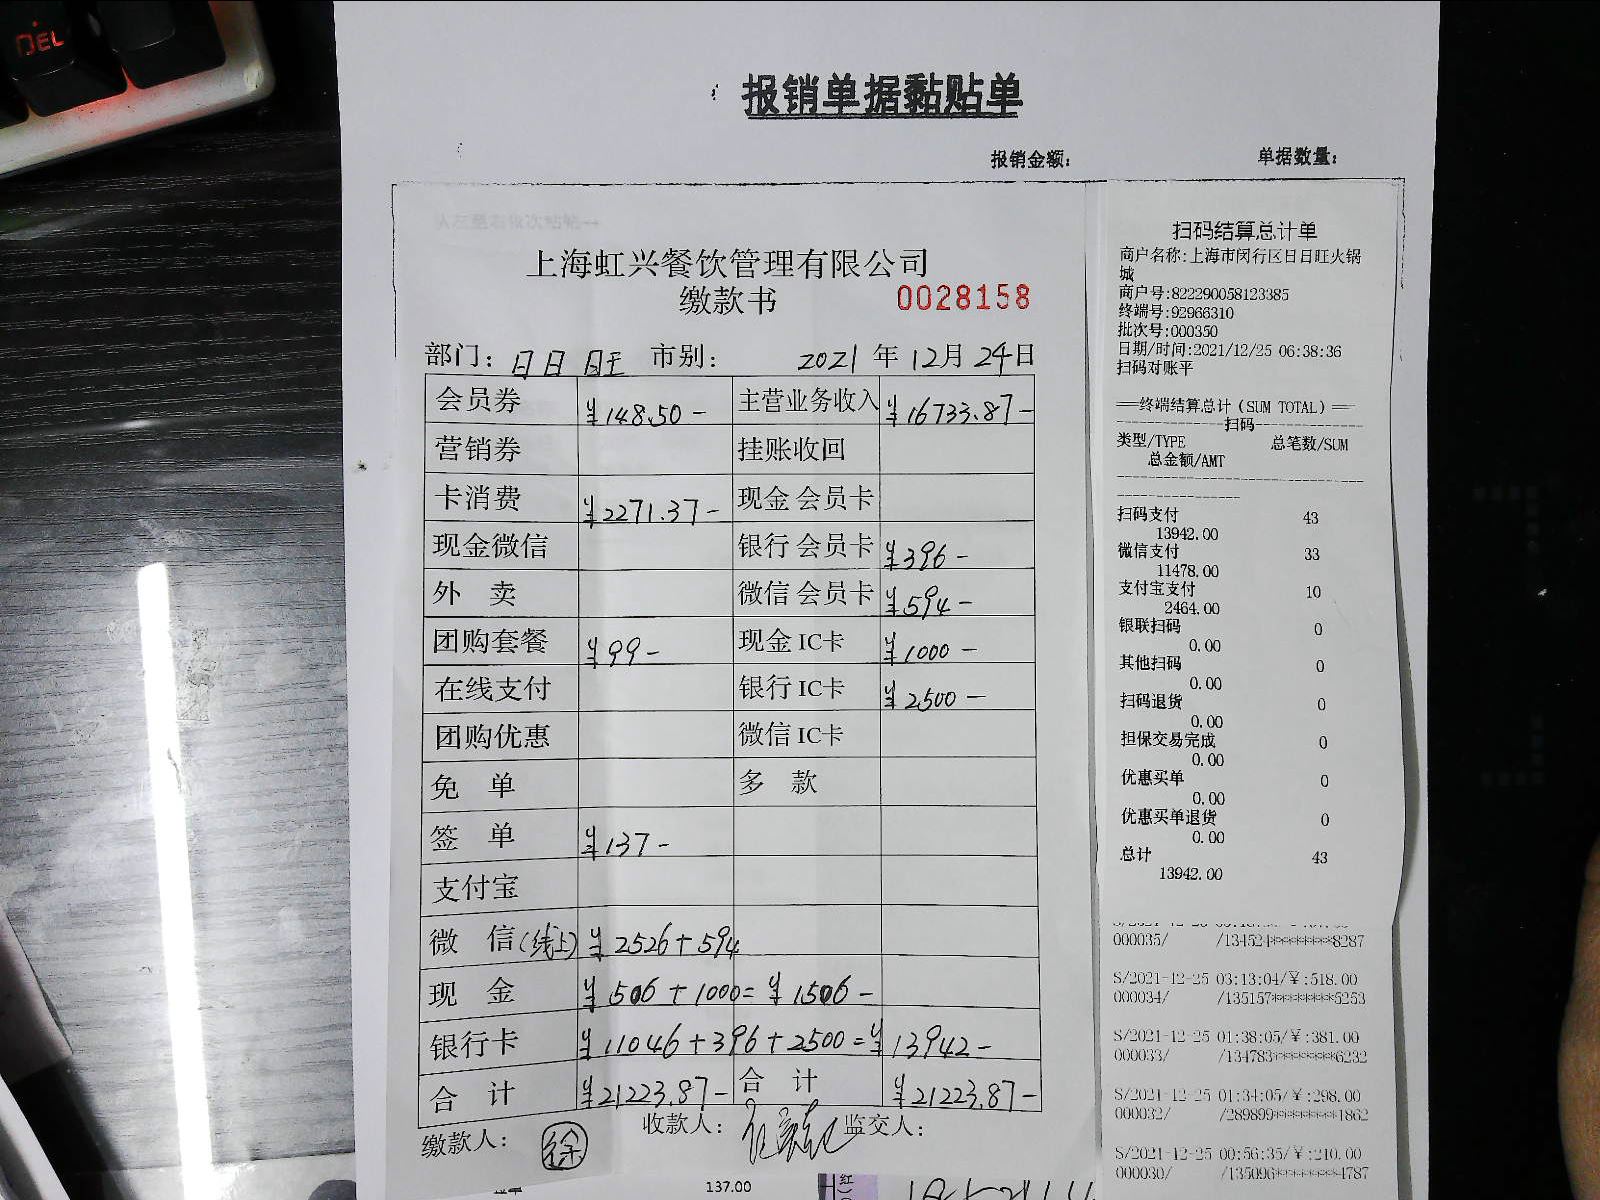 DEL
报销单据黏贴单
报销金额：
单据数量：
从左至右依次粘帖→
上海虹兴餐饮管理有限公司
缴款书 0028158
部门：日日旺 市别： 2021 年 12月 24日
会员券 ¥148.50- 主营业务收入 ¥16733.87-
营销券 挂账收回
卡消费 ¥2271.37- 现金会员卡
现金微信 银行会员卡 ¥396-
外 卖 微信会员卡 ¥594-
团购套餐 ¥99- 现金IC卡 ¥1000-
在线支付 银行IC卡 ¥2500-
团购优惠 微信IC卡
免 单 多 款
签 单 ¥137-
支付宝
微 信(线上) ¥2526+594
现 金 ¥506+1000=¥1506-
银行卡 ¥11046+396+2500=¥13942-
合 计 ¥21223.87- 合 计 ¥21223.87-
缴款人： 徐 收款人： 监交人：
137.00
扫码结算总计单
商户名称:上海市闵行区日日旺火锅
城
商户号:822290058123385
终端号:92966310
批次号:000350
日期/时间:2021/12/25 06:38:36
扫码对账平
==终端结算总计(SUM TOTAL)==
扫码
类型/TYPE 总笔数/SUM
总金额/AMT
扫码支付 43
13942.00
微信支付 33
11478.00
支付宝支付 10
2464.00
银联扫码 0
0.00
其他扫码 0
0.00
扫码退货 0
0.00
担保交易完成 0
0.00
优惠买单 0
0.00
优惠买单退货 0
0.00
总计 43
13942.00
000035/ /134524********8287
S/2021-12-25 03:13:04/¥:518.00
000034/ /135157********5253
S/2021-12-25 01:38:05/¥:381.00
000033/ /134783********6232
S/2021-12-25 01:34:05/¥:298.00
000032/ /289899********1862
S/2021-12-25 00:56:35/¥:210.00
000030/ /135096********4787